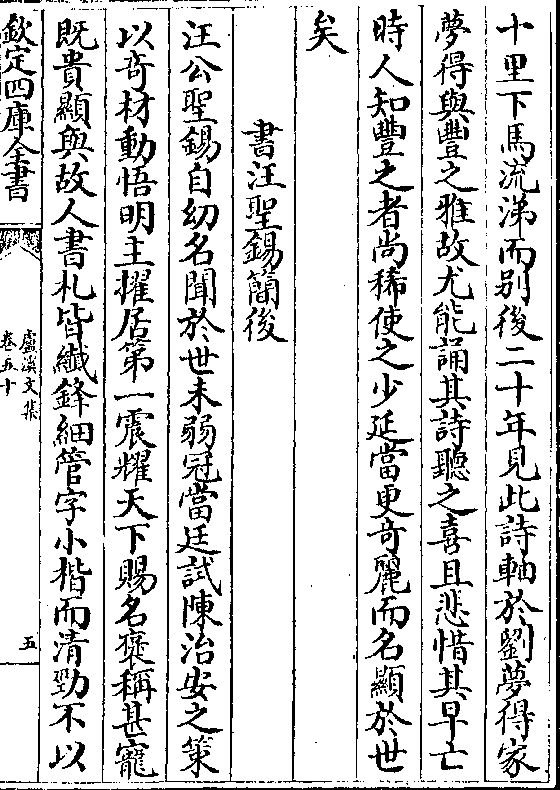 十里下馬流涕而别後二十年見此詩軸於劉夢得家
夢得與豐之雅故尤能誦其詩聽之喜且悲惜其早亡
時人知豐之者尚稀使之少延當更奇麗而名顯於世
矣
書汪聖錫簡後
汪公聖錫自幼名聞於世未弱冠當廷試陳治安之策
以奇材動悟明主擢居第一震耀天下賜名褒稱甚寵
既貴顯與故人書札皆纎鋒細管字小楷而清勁不以
欽定四庫全書
盧溪文集
卷五十
五